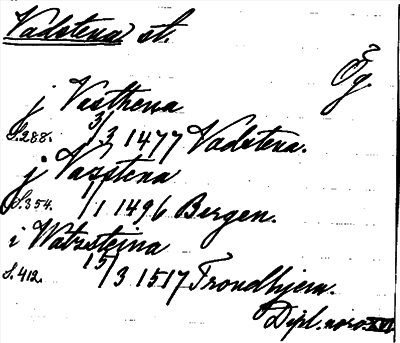 Vadstena st.
Ög.
j Vasthena
3/3 1477 Vadstena.
S. 288.
j Vasstena
1/1 1496 Bergen.
S. 354.
i Watzsteina
15/3 1517 Trondhjem.
S. 412.
Dipl. norv. XVI